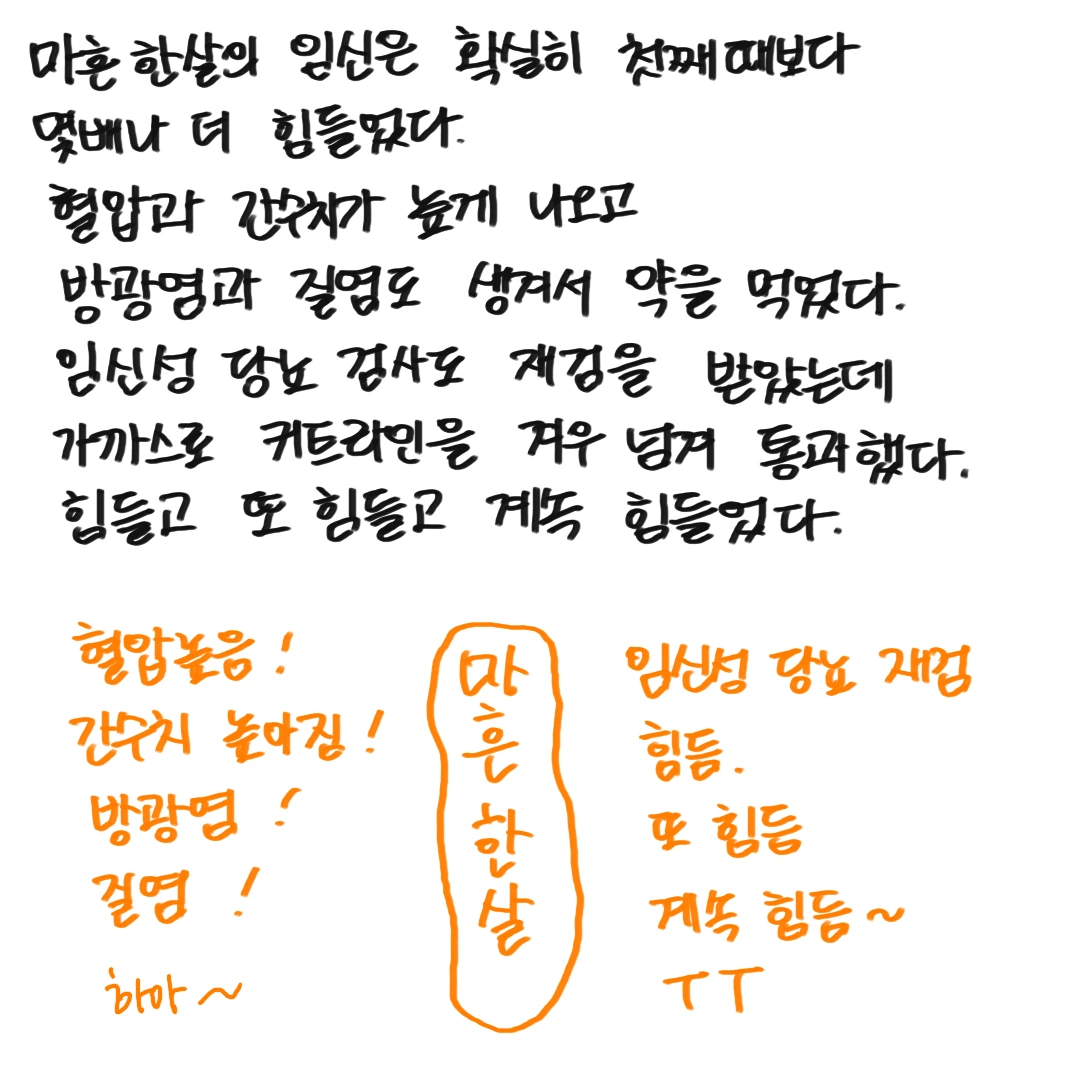 마흔 한살의 임신은 확실히 첫째 때보다
몇배나 더 힘들었다.
혈압과 간수치가 높게 나오고
방광염과 질염도 생겨서 약을 먹었다.
임신성 당뇨 검사도 재검을 받았는데
가까스로 커트라인을 겨우 넘겨 통과했다.
힘들고 또 힘들고 계속 힘들었다.
혈압높음!
간수치 높아짐!
방광염!
질염!
하아~
마흔한살
임신성 당뇨 재검
힘듬.
또 힘듬
계속 힘듬~
ㅜㅜ